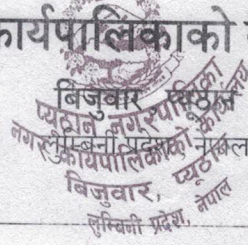 कार्यपालिकाको
बिजुवार प्यूठान
लुम्बिनी प्रदेश, नेपाल
प्यूठान नगरपालिका
नगर कार्यपालिकाको कार्यालय
बिजुवार, प्यूठान
लुम्बिनी प्रदेश, नेपाल